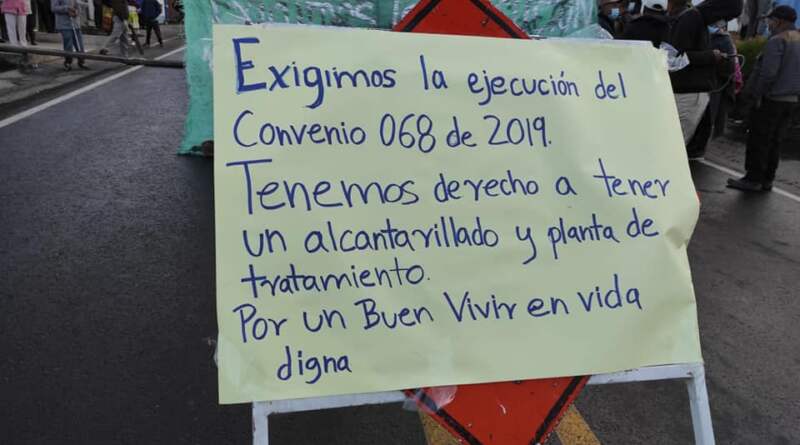 Exigimos la ejecución del
Convenio 068 de 2019.
Tenemos derecho a tener
un alcantarillado y planta de
tratamiento.
Por un Buen Vivir en vida
digna